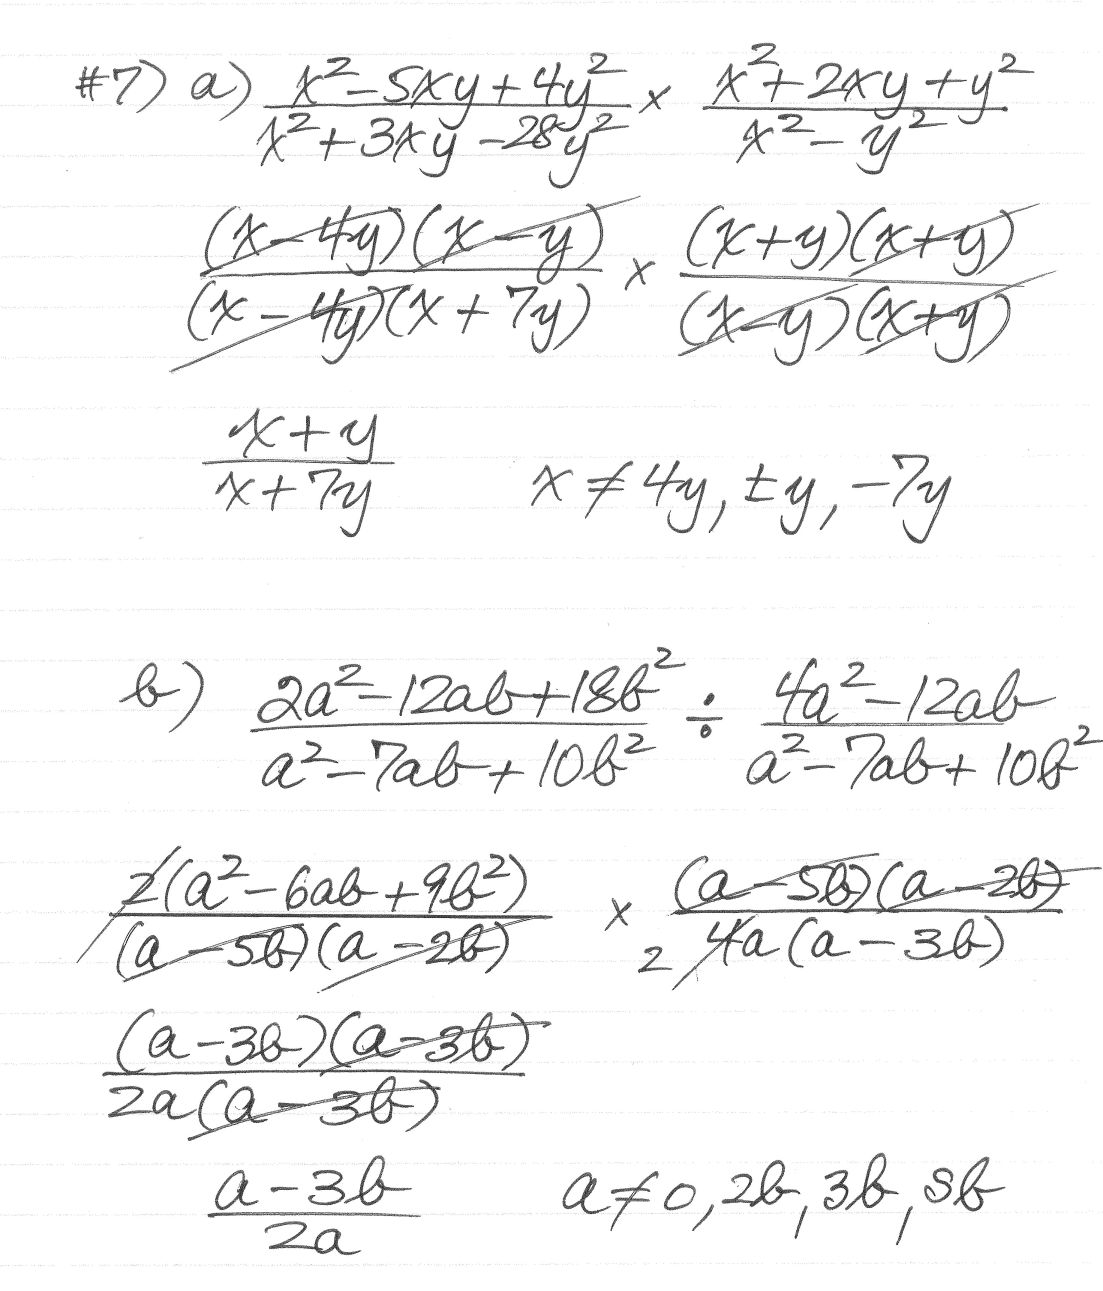 #7) a) (x² - 5xy + 4y²)/(x² + 3xy - 28y²) × (x² + 2xy + y²)/(x² - y²)
(x - 4y)(x - y)/(x - 4y)(x + 7y) × (x + y)(x + y)/(x - y)(x + y)
(x + y)/(x + 7y) x ≠ 4y, ±y, -7y
b) (2a² - 12ab + 18b²)/(a² - 7ab + 10b²) ÷ (4a² - 12ab)/(a² - 7ab + 10b²)
2(a² - 6ab + 9b²)/(a - 5b)(a - 2b) × (a - 5b)(a - 2b)/2 4a(a - 3b)
(a - 3b)(a - 3b)/2a(a - 3b)
(a - 3b)/2a a ≠ 0, 2b, 3b, 5b